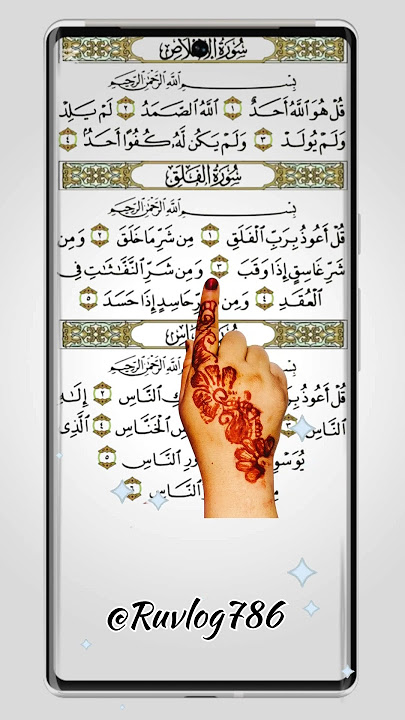 سُورَةُ الإخلاص
بِسْمِ ٱللَّهِ ٱلرَّحْمَٰنِ ٱلرَّحِيمِ
قُلْ هُوَ ٱللَّهُ أَحَدٌ ١ ٱللَّهُ ٱلصَّمَدُ ٢ لَمْ يَلِدْ
وَلَمْ يُولَدْ ٣ وَلَمْ يَكُن لَّهُۥ كُفُوًا أَحَدٌۢ ٤
سُورَةُ ٱلْفَلَقِ
بِسْمِ ٱللَّهِ ٱلرَّحْمَٰنِ ٱلرَّحِيمِ
قُلْ أَعُوذُ بِرَبِّ ٱلْفَلَقِ ١ مِن شَرِّ مَا خَلَقَ ٢ وَمِن
شَرِّ غَاسِقٍ إِذَا وَقَبَ ٣ وَمِن شَرِّ ٱلنَّفَّٰثَٰتِ فِى
ٱلْعُقَدِ ٤ وَمِن حَاسِدٍ إِذَا حَسَدَ ٥
بِسْمِ ٱللَّهِ ٱلرَّحْمَٰنِ ٱلرَّحِيمِ
قُلْ أَعُوذُ ٱلنَّاسِ ٢ إِلَٰهِ
ٱلنَّاسِ ٣ ٱلْخَنَّاسِ ٤ ٱلَّذِى
يُوَسْوِ ٱلنَّاسِ ٥
ٱلنَّاسِ
@Ruvlog786